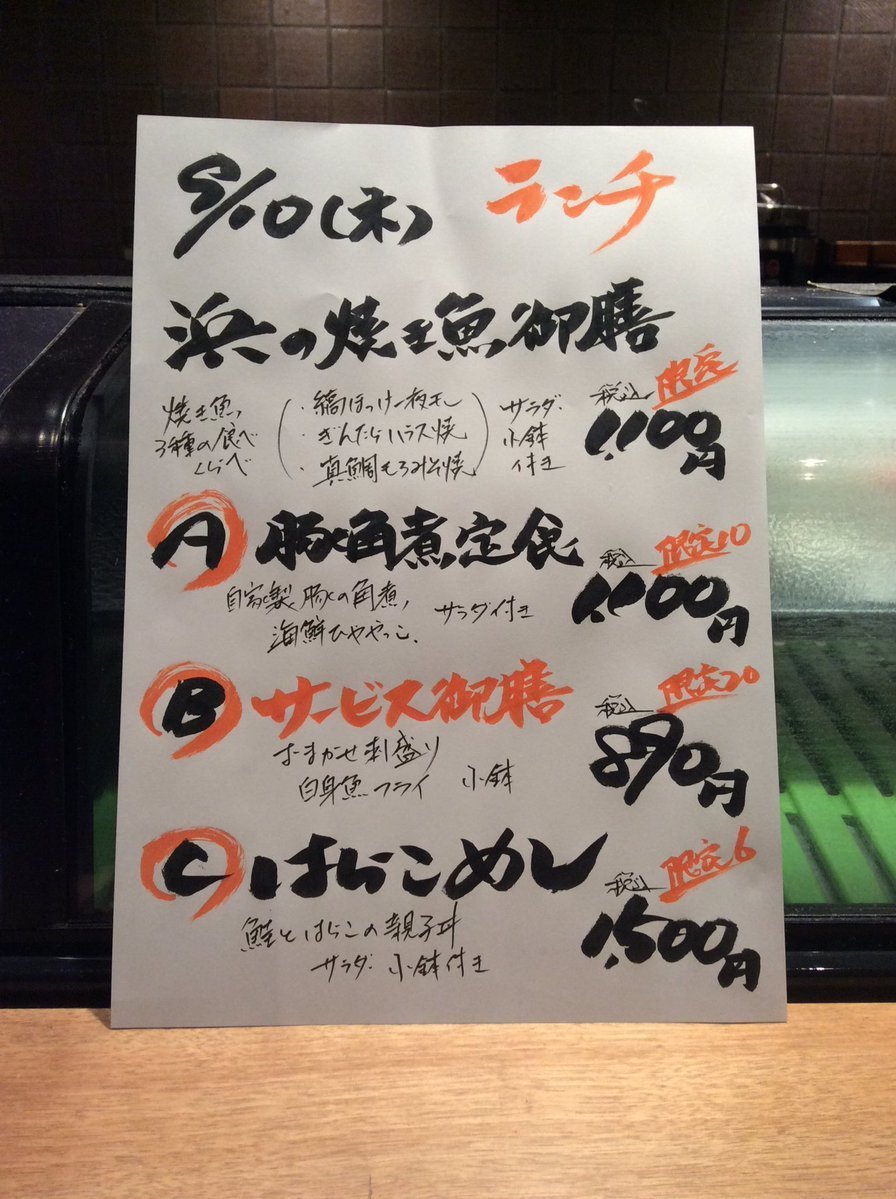 9/10(木) ランチ
浜の焼き魚御膳
焼き魚、
3種の食べ
くらべ
・縞ほっけ一夜干し
・ぎんだらハラス焼
・真鯛もろみ焼
サラダ・
小鉢
付き
税込 限定
1,100円
A 豚角煮定食
自家製豚の角煮、
海鮮ひややっこ、
サラダ付き
税込 限定10
1,100円
B サービス御膳
おまかせ刺盛り
白身魚フライ 小鉢
税込 限定20
890円
C はらこめし
鮭とはらこの親子丼
サラダ・小鉢付き
税込 限定6
1,500円